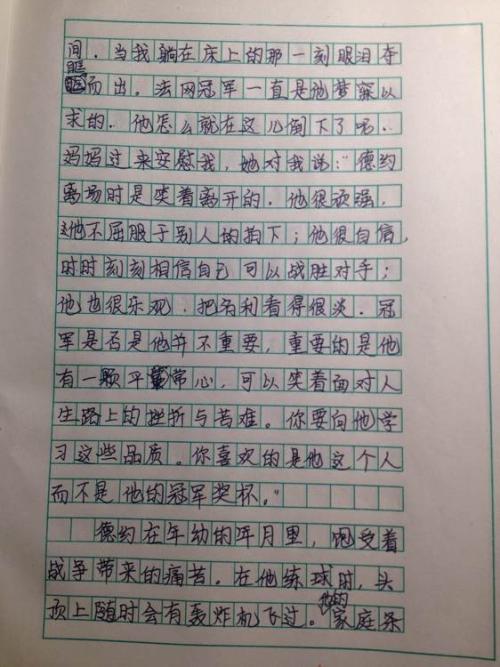 间．当我躺在床上的那一刻眼泪夺
眶而出．法网冠军一直是他梦寐以
求的．他怎么就在这儿倒下了呢．
妈妈过来安慰我，她对我说："德约
离场时是笑着离开的．他很顽强．
他不屈服于别人的拍下；他很自信，
时时刻刻相信自己可以战胜对手；
他也很乐观．把名利看得很淡．冠
军是否是他并不重要，重要的是他
有一颗平常心，可以笑着面对人
生路上的挫折与苦难。你要向他学
习这些品质。你喜欢的是他这个人
而不是他的冠军奖杯。"
德约在年幼的年月里，饱受着
战争带来的痛苦。在他练球时，头
顶上随时会有轰炸机飞过。他的家庭